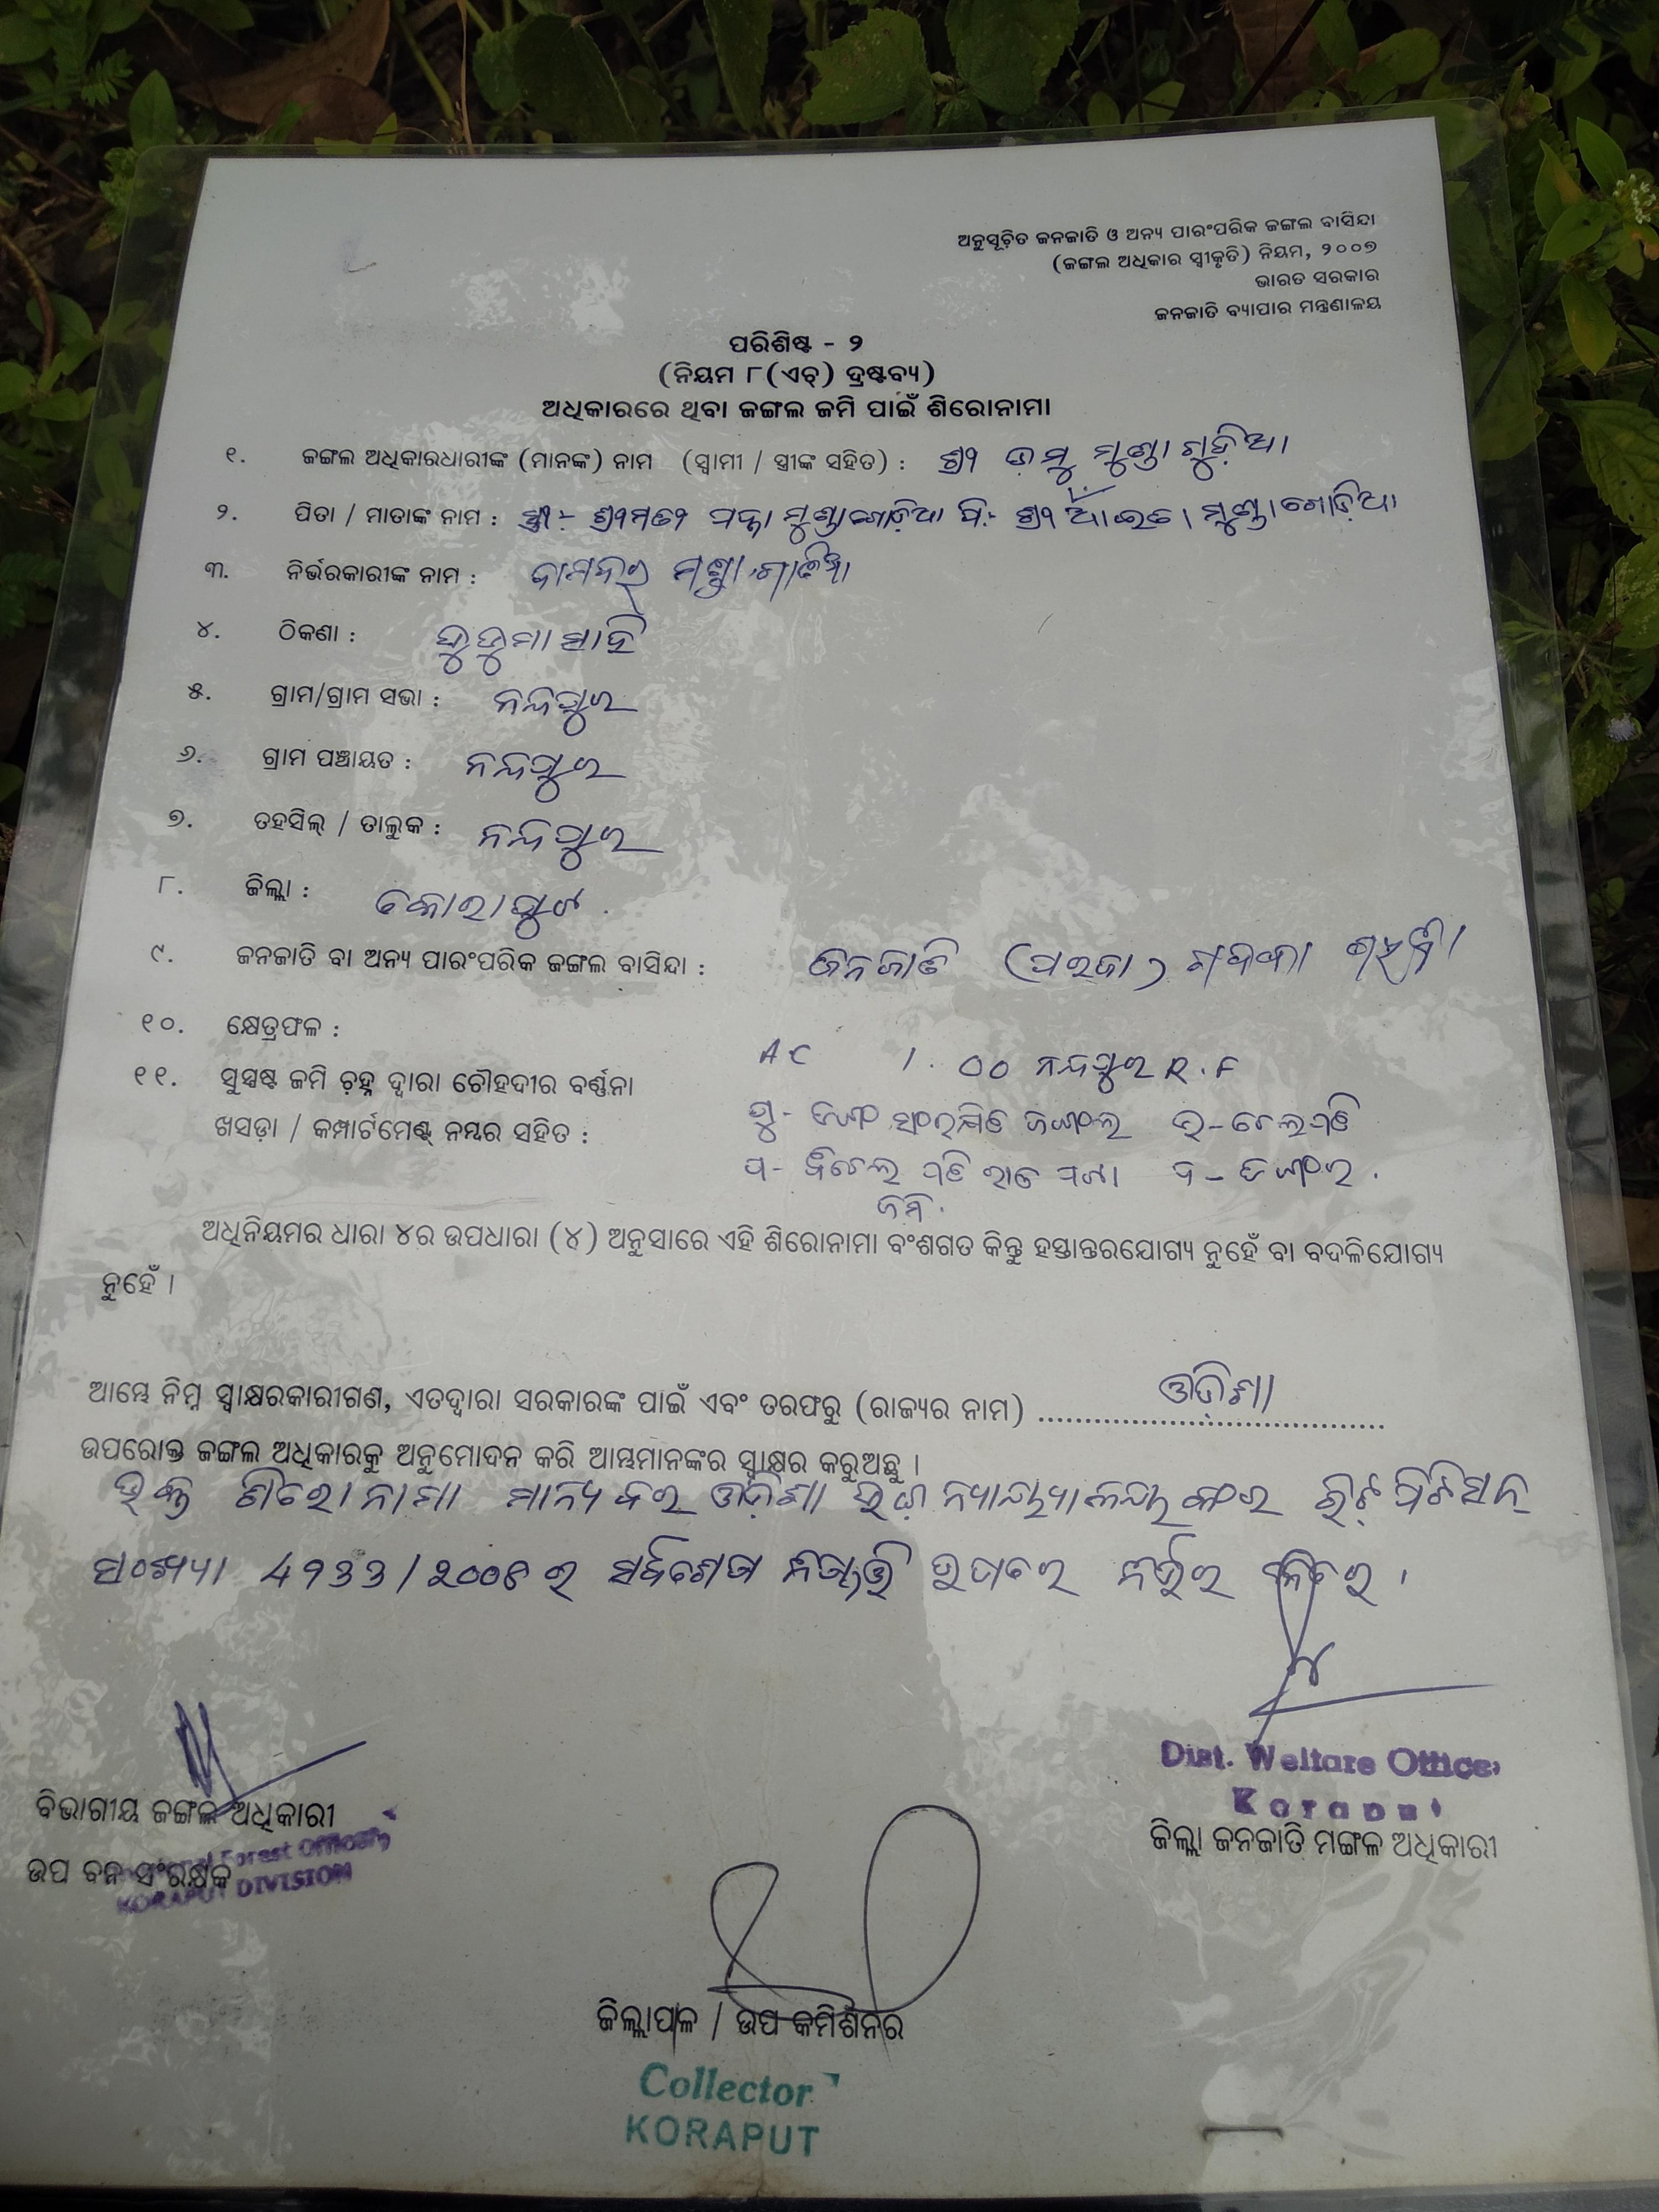 ଅନୁସୂଚିତ ଜନଜାତି ଓ ଅନ୍ୟ ପାରଂପରିକ ଜଙ୍ଗଲ ବାସିନ୍ଦା
(ଜଙ୍ଗଲ ଅଧିକାର ସ୍ଵୀକୃତି) ନିୟମ, ୨୦୦୭
ଭାରତ ସରକାର
ଜନଜାତି ବ୍ୟାପାର ମନ୍ତ୍ରଣାଳୟ
ପରିଶିଷ୍ଟ - ୨
(ନିୟମ ୮(ଏଚ୍) ଦ୍ରଷ୍ଟବ୍ୟ)
ଅଧିକାରରେ ଥିବା ଜଙ୍ଗଲ ଜମି ପାଇଁ ଶିରୋନାମା
୧. ଜଙ୍ଗଲ ଅଧିକାରଧାରୀଙ୍କ (ମାନଙ୍କ) ନାମ (ସ୍ୱାମୀ / ସ୍ତ୍ରୀଙ୍କ ସହିତ) : ଶ୍ରୀ ଡମୁ ମୁଣ୍ଡାଗୁଡ଼ିଆ
୨. ପିତା / ମାତାଙ୍କ ନାମ : ସ୍ତ୍ରୀ:- ଶ୍ରୀମତୀ ମୁଣ୍ଡାଗୋଡ଼ିଆ ପି:- ଶ୍ରୀ ମୁଣ୍ଡାଗୋଡ଼ିଆ
୩. ନିର୍ଭରକାରୀଙ୍କ ନାମ :
୪. ଠିକଣା : ଡୁଡୁମା ସାହି
୫. ଗ୍ରାମ/ଗ୍ରାମ ସଭା : ନନ୍ଦପୁର
୬. ଗ୍ରାମ ପଞ୍ଚାୟତ : ନନ୍ଦପୁର
୭. ତହସିଲ୍ / ତାଲୁକ : ନନ୍ଦପୁର
୮. ଜିଲ୍ଲା : କୋରାପୁଟ
୯. ଜନଜାତି ବା ଅନ୍ୟ ପାରଂପରିକ ଜଙ୍ଗଲ ବାସିନ୍ଦା : ଜନଜାତି (ପରଜା)
୧୦. କ୍ଷେତ୍ରଫଳ :
AC 1.00 ନନ୍ଦପୁର R.F
୧୧. ସୁସ୍ପଷ୍ଟ ଜମି ଚିହ୍ନ ଦ୍ୱାରା ଚୌହଦୀର ବର୍ଣ୍ଣନା
ଖସଡ଼ା / କମ୍ପାର୍ଟମେଣ୍ଟ୍ ନମ୍ବର ସହିତ :
ପୁ- ସଂରକ୍ଷିତ ଜଙ୍ଗଲ ଉ-
ପ- ଦ-
ଜମି.
ଅଧିନିୟମର ଧାରା ୪ର ଉପଧାରା (୪) ଅନୁସାରେ ଏହି ଶିରୋନାମା ବଂଶଗତ କିନ୍ତୁ ହସ୍ତାନ୍ତରଯୋଗ୍ୟ ନୁହେଁ ବା ବଦଳିଯୋଗ୍ୟ
ନୁହେଁ ।
ଆମ୍ଭେ ନିମ୍ନ ସ୍ୱାକ୍ଷରକାରୀଗଣ, ଏତଦ୍ୱାରା ସରକାରଙ୍କ ପାଇଁ ଏବଂ ତରଫରୁ (ରାଜ୍ୟର ନାମ) ଓଡ଼ିଶା
ଉପରୋକ୍ତ ଜଙ୍ଗଲ ଅଧିକାରକୁ ଅନୁମୋଦନ କରି ଆମ୍ଭମାନଙ୍କର ସ୍ୱାକ୍ଷର କରୁଅଛୁ ।
ଉକ୍ତ ଶିରୋନାମା ମାନ୍ୟବର ଓଡ଼ିଶା ଉଚ୍ଚ ନ୍ୟାୟାଳୟଙ୍କର ରିଟ୍ ପିଟିସନ୍
ସଂଖ୍ୟା 4933/୨୦୦୮ ର ଉପରେ ନିର୍ଭର
ବିଭାଗୀୟ ଜଙ୍ଗଲ ଅଧିକାରୀ
ଉପ ବନ ସଂରକ୍ଷକ
Forest Officer,
KORAPUT DIVISION
Dist. Welfare Officer
Koraput
ଜିଲ୍ଲା ଜନଜାତି ମଙ୍ଗଳ ଅଧିକାରୀ
ଜିଲ୍ଲାପାଳ / ଉପ କମିଶନର
Collector
KORAPUT